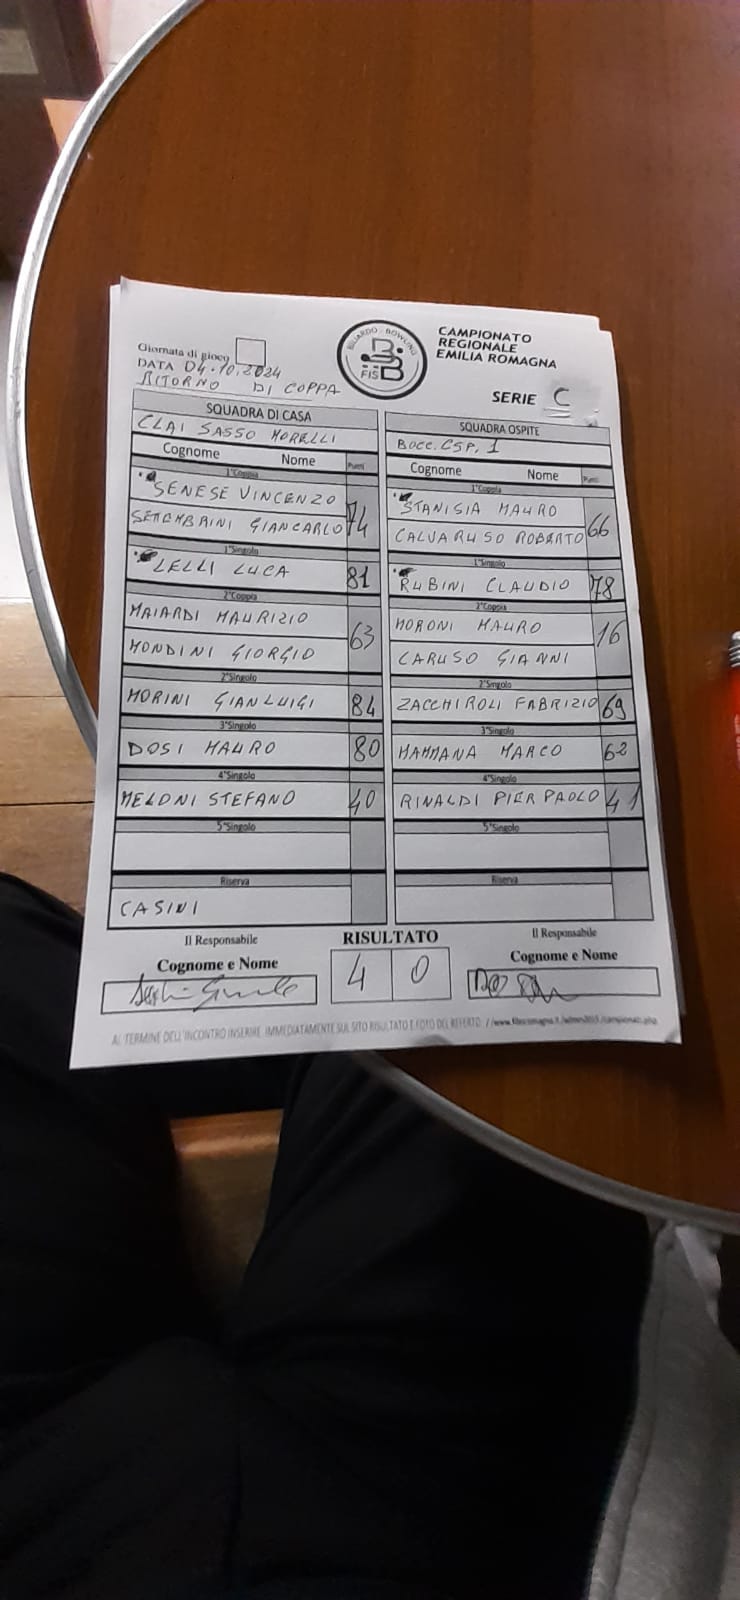 Giornata di gioco
DATA 04.10.2024
RITORNO DI COPPA
BILIARDO - BOWLING
FISBB
CAMPIONATO
REGIONALE
EMILIA ROMAGNA
SERIE C
SQUADRA DI CASA
CLAI SASSO MORELLI
Cognome Nome Punti
1°Coppia
SENESE VINCENZO
SETEMBRINI GIANCARLO 74
1°Singolo
LELLI LUCA 81
2°Coppia
MAIARDI MAURIZIO
MONDINI GIORGIO 63
2°Singolo
MORINI GIANLUIGI 84
3°Singolo
DOSI MAURO 80
4°Singolo
MELONI STEFANO 40
5°Singolo
Riserva
CASINI
SQUADRA OSPITE
BOCC. CSP. 1
Cognome Nome Punti
1°Coppia
STANISIA MAURO
CALVARUSO ROBERTO 66
1°Singolo
RUBINI CLAUDIO 78
2°Coppia
MORONI MAURO
CARUSO GIANNI 16
2°Singolo
ZACCHIROLI FABRIZIO 69
3°Singolo
MAMMANA MARCO 62
4°Singolo
RINALDI PIER PAOLO 41
5°Singolo
Riserva
Il Responsabile
Cognome e Nome
RISULTATO
4 0
Il Responsabile
Cognome e Nome
AL TERMINE DELL'INCONTRO INSERIRE IMMEDIATAMENTE SUL SITO RISULTATO E FOTO DEL REFERTO